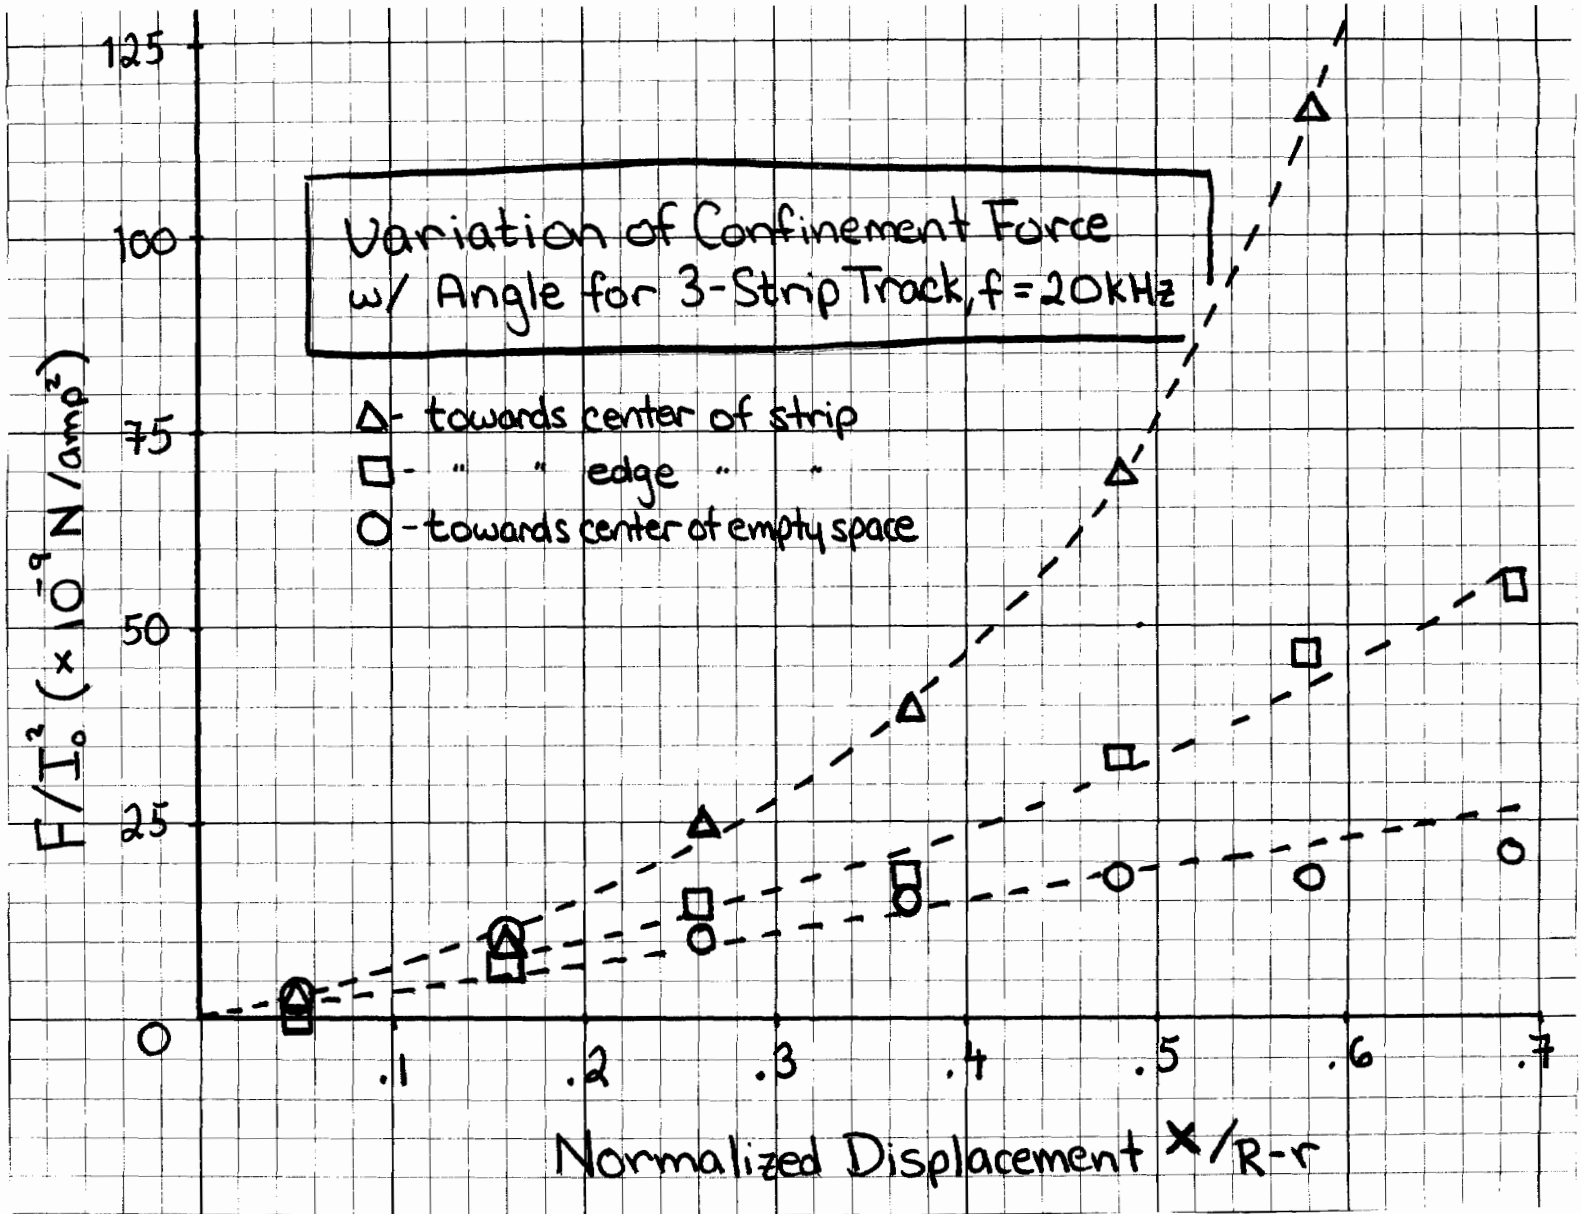 125
100
75
50
25
0
F/I₀² (× 10⁻⁹ N/amp²)
Variation of Confinement Force
w/ Angle for 3-Strip Track, f = 20kHz
△ - towards center of strip
□ - " " edge " "
○ - towards center of empty space
.1 .2 .3 .4 .5 .6 .7
Normalized Displacement x/R-r